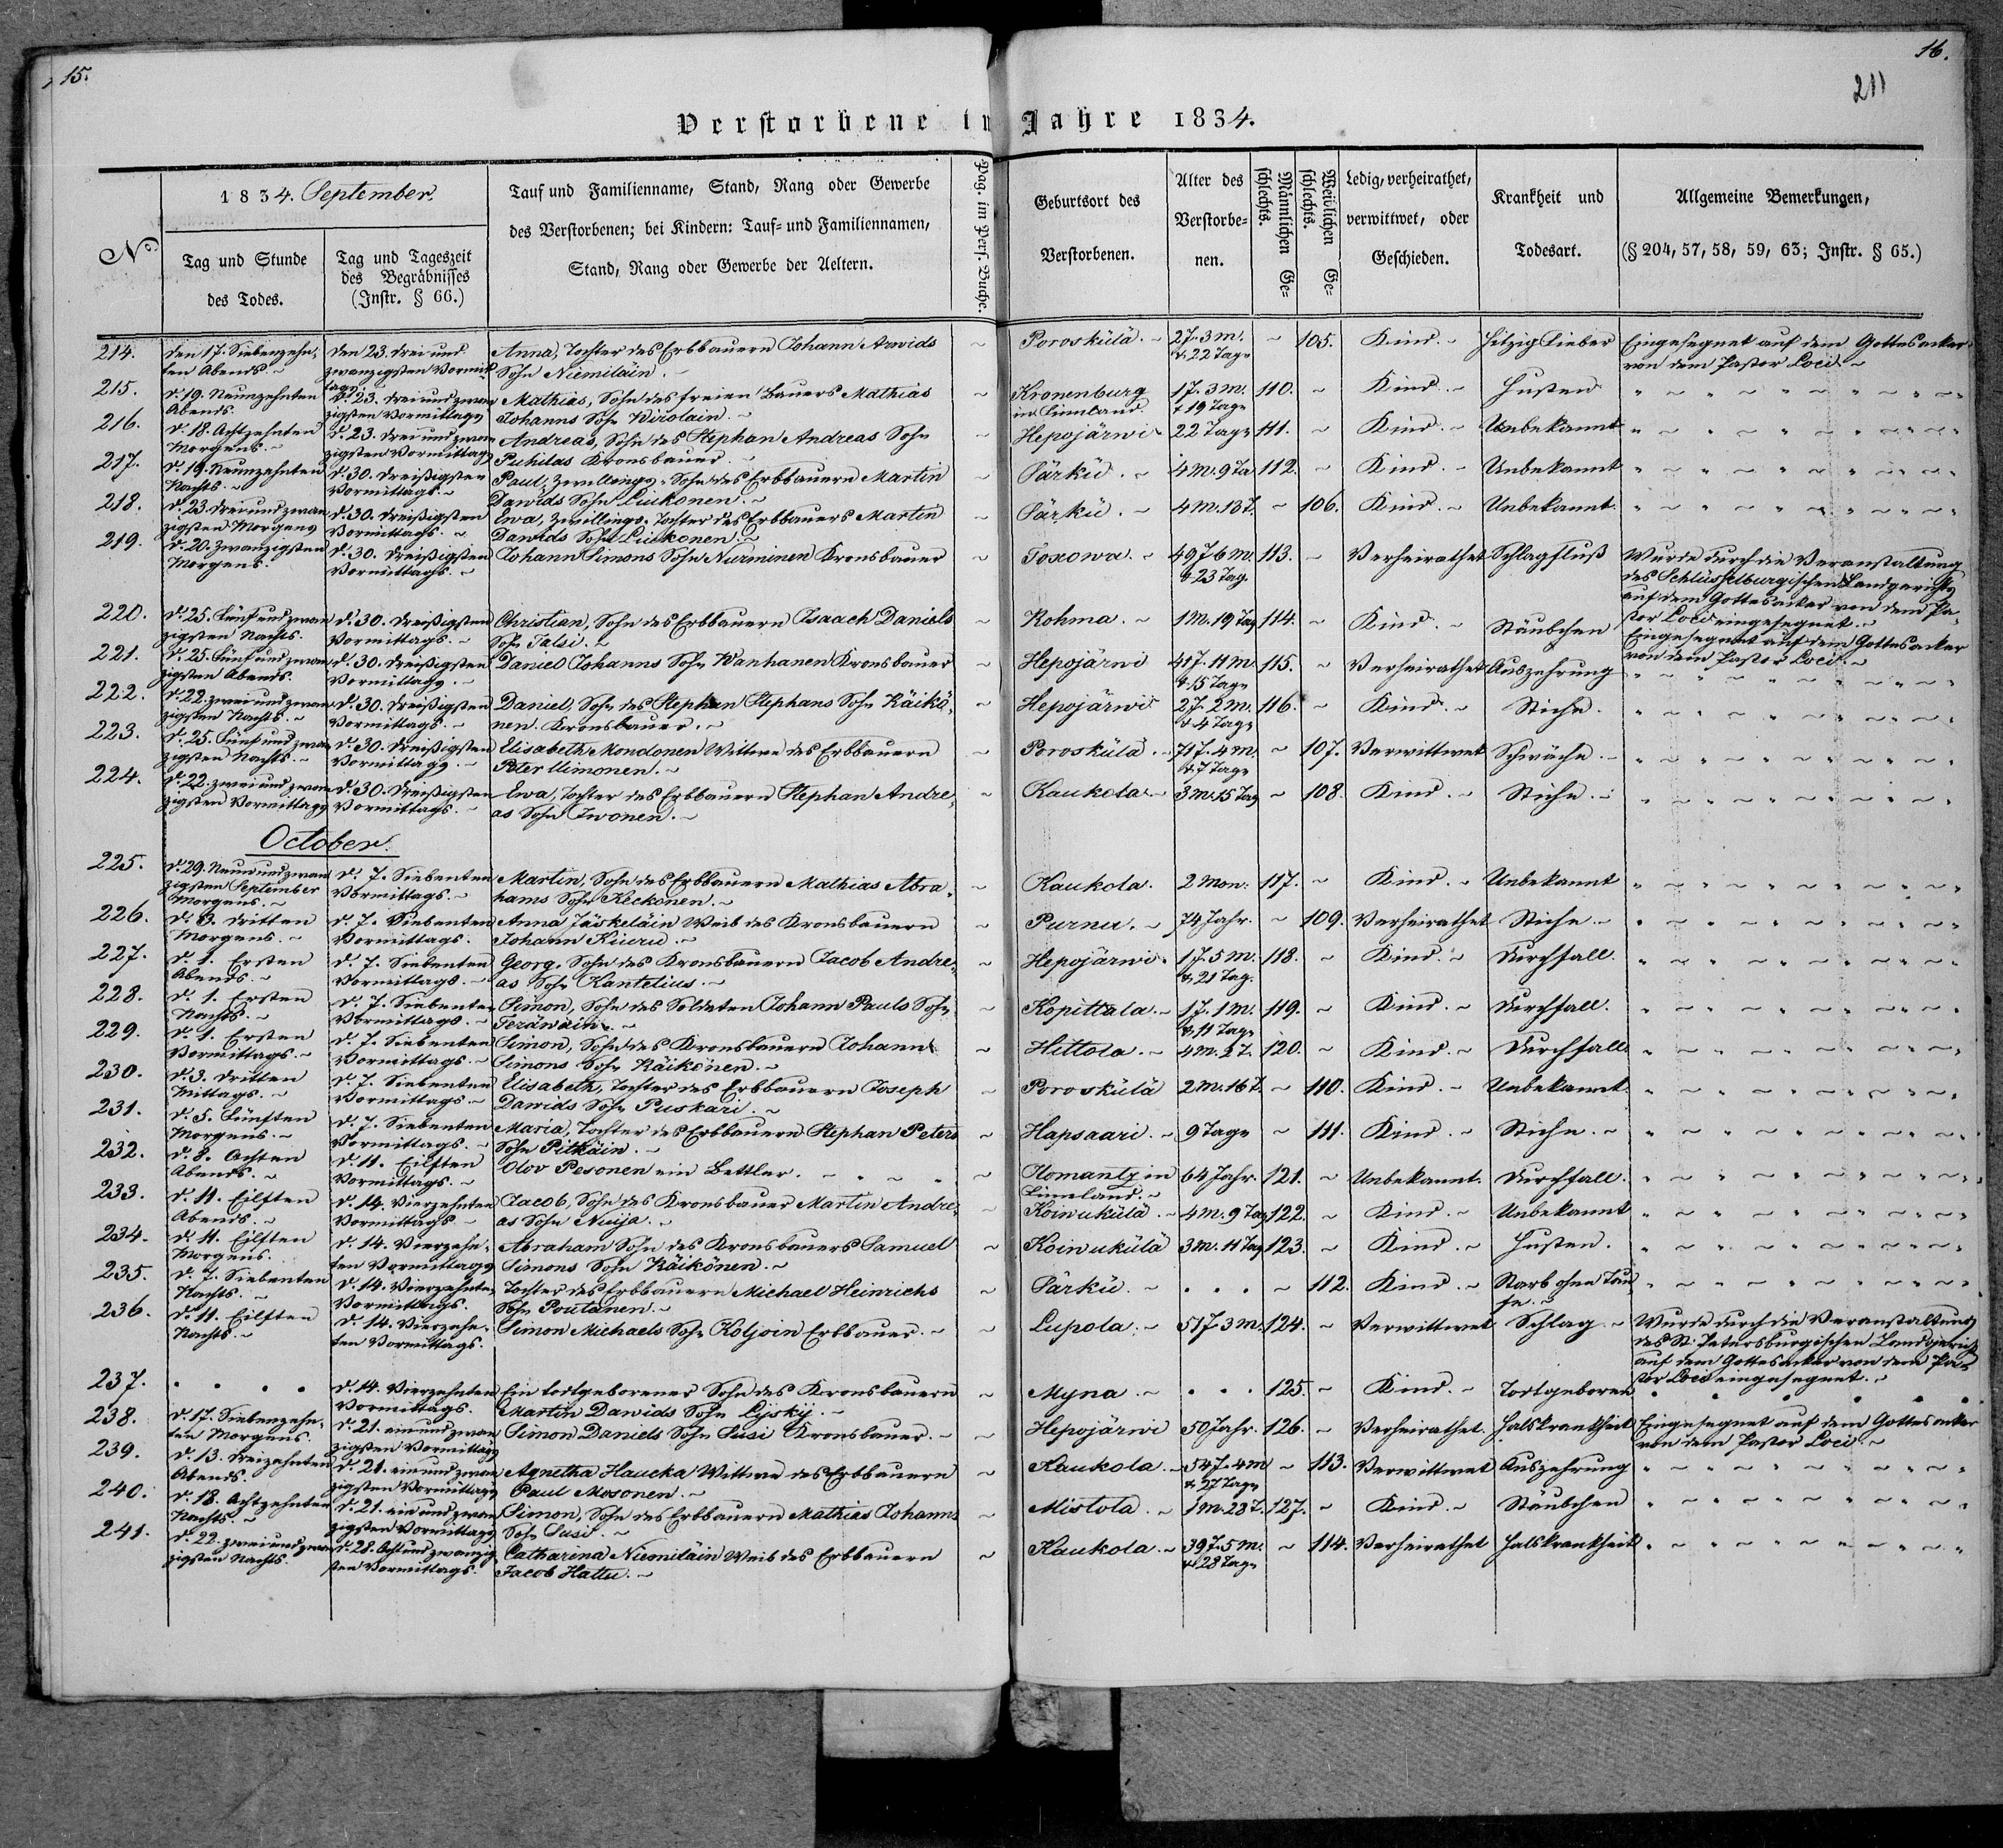 15.
16.
211
Verstorbene im Jahre 1834.
No
1834. September.
Tag und Stunde des Todes.
Tag und Tageszeit des Begräbnisses (Instr. § 66.)
Tauf und Familienname, Stand, Rang oder Gewerbe des Verstorbenen; bei Kindern: Tauf- und Familiennamen, Stand, Rang oder Gewerbe der Aeltern.
Pag. im Pers. Buche.
Geburtsort des Verstorbenen.
Alter des Verstorbenen.
Männlichen Geschlechts.
Weiblichen Geschlechts.
Ledig, verheirathet, verwittwet, oder Geschieden.
Krankheit und Todesart.
Allgemeine Bemerkungen, (§ 204, 57, 58, 59, 63; Instr. § 65.)
214. den 17. Siebenzehnten Abends. den 23. drei und zwanzigsten Vormittags Anna, Tochter des Erbbauern Johann Dawids Sohn Niemiläin. Poroskülä. 2 J. 3 M. & 22 Tage 105. Kind. Hitzig Fieber Eingesegnet auf dem Gottesacker von dem Pastor Loci.
215. d. 19. Neunzehnten Abends. d. 23. drei und zwanzigsten Vormittags Mathias, Sohn des freien Bauers Mathias Johanns Sohn Wirolain. Kronenburg in Finnland. 1 J. 3 M. & 19 Tage 110. Kind. Husten
216. d. 18. Achtzehnten Morgens. d. 23. drei und zwanzigsten Vormittags Andreas, Sohn des Stephan Andreas Sohn Puhilas Kronsbauer. Hepojärwi 22 Tage 111. Kind. Unbekannt
217. d. 19. Neunzehnten Nachts. d. 30. dreißigsten Vormittags. Paul, Zwillings-Sohn des Erbbauern Martin Dawids Sohn Liukonen. Särkü. 4 M. 9 Ta. 112. Kind. Unbekannt
218. d. 23. drei und zwanzigsten Morgens d. 30. dreißigsten Vormittags. Ewa, Zwillings-Tochter des Erbbauers Martin Dawids Sohn Liukonen. Särkü. 4 M. 13 T. 106. Kind. Unbekannt.
219. d. 20. Zwanzigsten Morgens d. 30. dreißigsten Vormittags. Johann Simons Sohn Nurminen Kronsbauer Toxowa. 49 J. 6 M. & 23 Tag. 113. Verheirathet Schlagfluß Wurde durch die Veranstaltung des Schlüsselburgischen Landgerichts auf dem Gottesacker von dem Pastor Loci eingesegnet.
220. d. 25. Fünf und zwanzigsten Nachts. d. 30. dreißigsten Vormittags. Christian, Sohn des Erbbauern Isaach Daniels Sohn Talsi. Rohma. 1 M. 19 Tag 114. Kind. Stäubchen Eingesegnet auf dem Gottesacker von dem Pastor Loci.
221. d. 25. Fünf und zwanzigsten Abends. d. 30. dreißigsten Vormittags. Daniel Johanns Sohn Wanhanen Kronsbauer Hepojärwi 41 J. 11 M. & 15 Tage 115. Verheirathet Auszehrung
222. d. 22. zwei und zwanzigsten Nachts. d. 30. dreißigsten Vormittags. Daniel, Sohn des Stephan Stephans Sohn Räikönen. Kronsbauer. Hepojärwi 2 J. 2 M. & 4 Tage 116. Kind. Stiche.
223. d. 25. Fünf und zwanzigsten Nachts. d. 30. dreißigsten Vormittags. Elisabeth Mondonen Wittwe des Erbbauern Peter Uimonen. Poroskülä. 71 J. 4 M. & 7 Tage 107. Verwittwet Schwäche.
224. d. 22. zwei und zwanzigsten Vormittags d. 30. dreißigsten Vormittags. Ewa, Tochter des Erbbauern Stephan Andreas Sohn Iwonen. Kaukola. 3 M. 15 Tag 108. Kind. Stiche.
October.
225. d. 29. Neun und zwanzigsten September Morgens. d. 7. Siebenten Vormittags. Martin, Sohn des Erbbauern Mathias Abrahams Sohn Keckonen. Kaukola. 2 Mon. 117. Kind. Unbekannt
226. d. 3. dritten Morgens. d. 7. Siebenten Vormittags. Anna Jäskeläin Weib des Kronsbauern Johann Kiuru. Purnu. 74 Jahr. 109. Verheirathet Stiche.
227. d. 1. Ersten Abends. d. 7. Siebenten Vormittags. Georg. Sohn des Kronsbauern Jacob Andreas Sohn Kantelius. Hepojärwi. 1 J. 5 M. & 21 Tag. 118. Kind. Durchfall.
228. d. 1. Ersten Nachts. d. 7. Siebenten Vormittags. Simon, Sohn des Soldaten Johann Pauls Sohn Teräwäin. Kopittala. 1 J. 1 M. & 11 Tage 119. Kind. Durchfall.
229. d. 1. Ersten Vormittags. d. 7. Siebenten Vormittags. Simon, Sohn des Kronsbauern Johann Simons Sohn Räikönen. Hittola. 4 M. 2 T. 120. Kind. Durchfall
230. d. 3. dritten Mittags. d. 7. Siebenten Vormittags. Elisabeth, Tochter des Erbbauern Joseph Dawids Sohn Puskari. Poroskülä 2 M. 16 T. 110. Kind. Unbekannt
231. d. 5. Fünften Morgens. d. 7. Siebenten Vormittags. Maria, Tochter des Erbbauern Stephan Peters Sohn Pitkäin. Hapsaari. 9 Tage 111. Kind. Stiche.
232. d. 8. Achten Abends. d. 11. Eilften Vormittags. Olov Pesonen ein Bettler. Ilomantz in Finnland. 64 Jahr. 121. Unbekannt. Durchfall.
233. d. 11. Eilften Abends. d. 14. Vierzehnten Vormittags Jacob, Sohn des Kronsbauer Martin Andreas Sohn Nuija. Koinukülä. 4 M. 9 Tag 122. Kind. Unbekannt
234. d. 11. Eilften Morgens. d. 14. Vierzehnten Vormittags Abraham Sohn des Kronsbauers Samuel Simons Sohn Räikönen. Koinukülä 3 M. 11 Tag 123. Kind. Husten.
235. d. 7. Siebenten Nachts. d. 14. Vierzehnten Vormittags. Tochter des Erbbauern Michael Heinrichs Sohn Poutanen. Särkü. . . . 112. Kind. Starb ohne Taufe.
236. d. 11. Eilften Nachts. d. 14. Vierzehnten Vormittags. Simon Michaels Sohn Koljoin Erbbauer. Lupola. 51 J 3 M. 124. Verwittwet Schlag. Wurde durch die Veranstaltung des St. Petersburgischen Landgerichts auf dem Gottesacker von dem Pastor Loci eingesegnet.
237. . . . . d. 14. Vierzehnten Vormittags. Ein todtgeborener Sohn des Kronsbauern Martin Dawids Sohn Lÿskÿ. Myna. . . . 125. Kind. Todtgeboren
238. d. 17. Siebenzehnten Morgens. d. 21. ein und zwanzigsten Vormittag Simon Daniels Sohn Susi Kronsbauer. Hepojärwi 50 Jahr. 126. Verheirathet. Halskrankheit Eingesegnet auf dem Gottesacker von dem Pastor Loci.
239. d. 13. dreizehnten Abends. d. 21. ein und zwanzigsten Vormittags Agnetha Haucka Wittwe des Erbbauern Paul Mosonen. Kaukola. 54 J. 4 M & 27 Tage 113. Verwittwet Auszehrung
240. d. 18. Achtzehnten Nachts. d. 21. ein und zwanzigsten Vormittags Simon, Sohn des Erbbauern Mathias Johanns Sohn Susi. Mistola. 1 M. 23 T. 127. Kind. Stäubchen
241. d. 22. zwei und zwanzigsten Nachts. d. 28. Acht und zwanzigsten Vormittags. Catharina Niemiläin Weib des Erbbauern Jacob Hattu. Kaukola. 39 J. 5 M. & 28 Tage 114. Verheirathet Halskrankheit